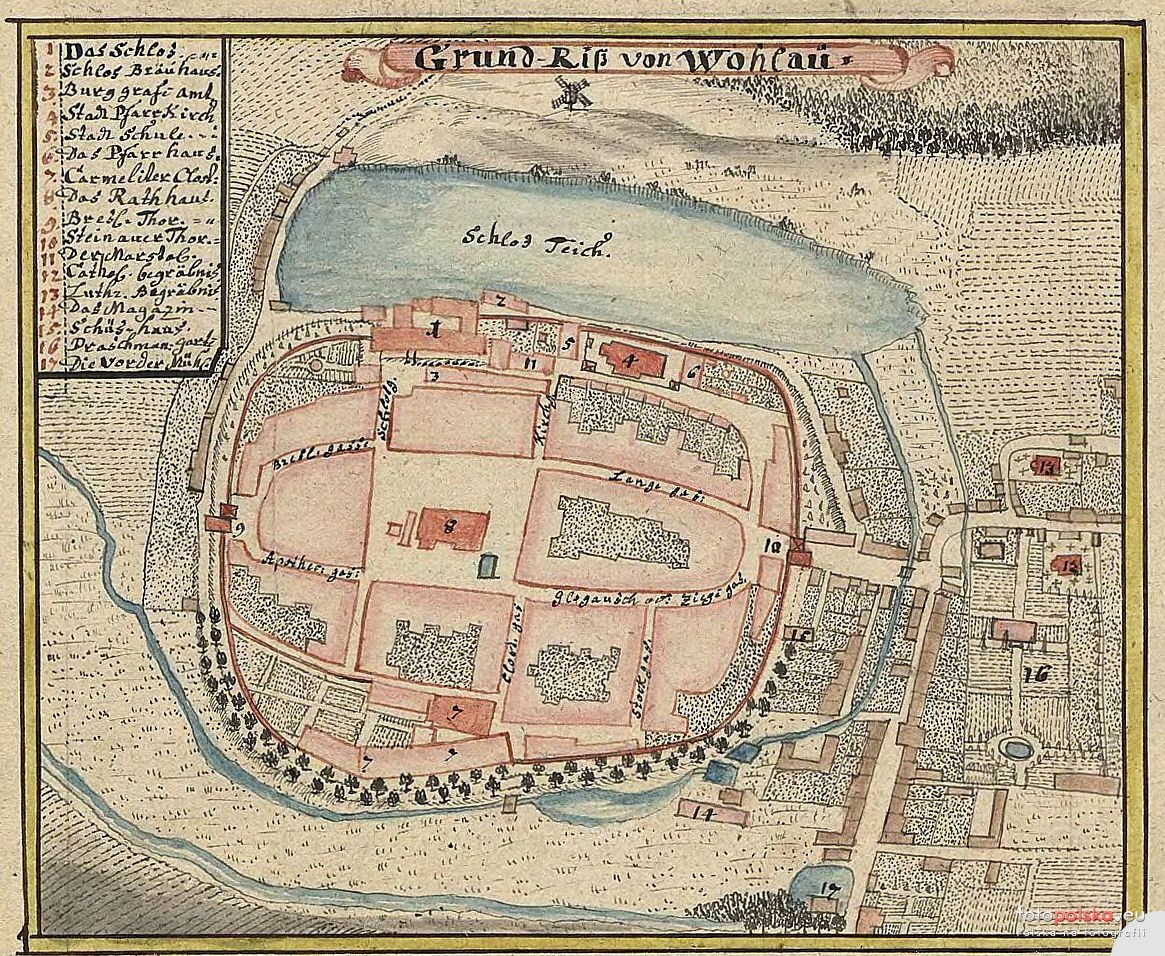 Grund-Riß von Wohlau
1 Das Schlos
2 Schlos Bräuhaus
3 Burggrafe amt
4 Stadt Pfarr Kirch
5 Stadt Schule
6 Das Pfarrhaus
7 Carmeliter Clost:
8 Das Rathhaus
9 Bresl. Thor
10 Steinauer Thor
11 Der Marstal
12 Cathol. begräbnis
13 Luthr. Begräbnis
14 Das Magazin
15 Schüs-haus
16 Draschman. gart
17 Die Vorder Mühl
Schlos Teich.
2
1
5
4
6
11
3
Schlos
Kirch
13
Bresl. gass
Lange gas:
8
9
10
12
Apothec. gas:
Glogausch od. Ziege gas.
15
Clost. gas
16
7
7
7
14
17
fotopolska.eu
Polska na fotografii